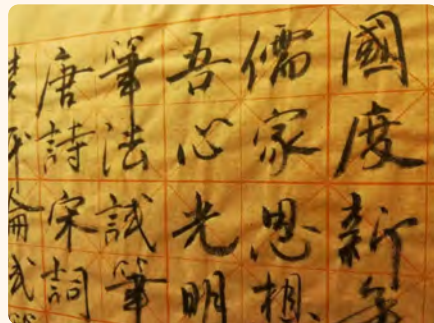 國度新
儒家思想
吾心光明
筆法試筆
唐詩宋詞